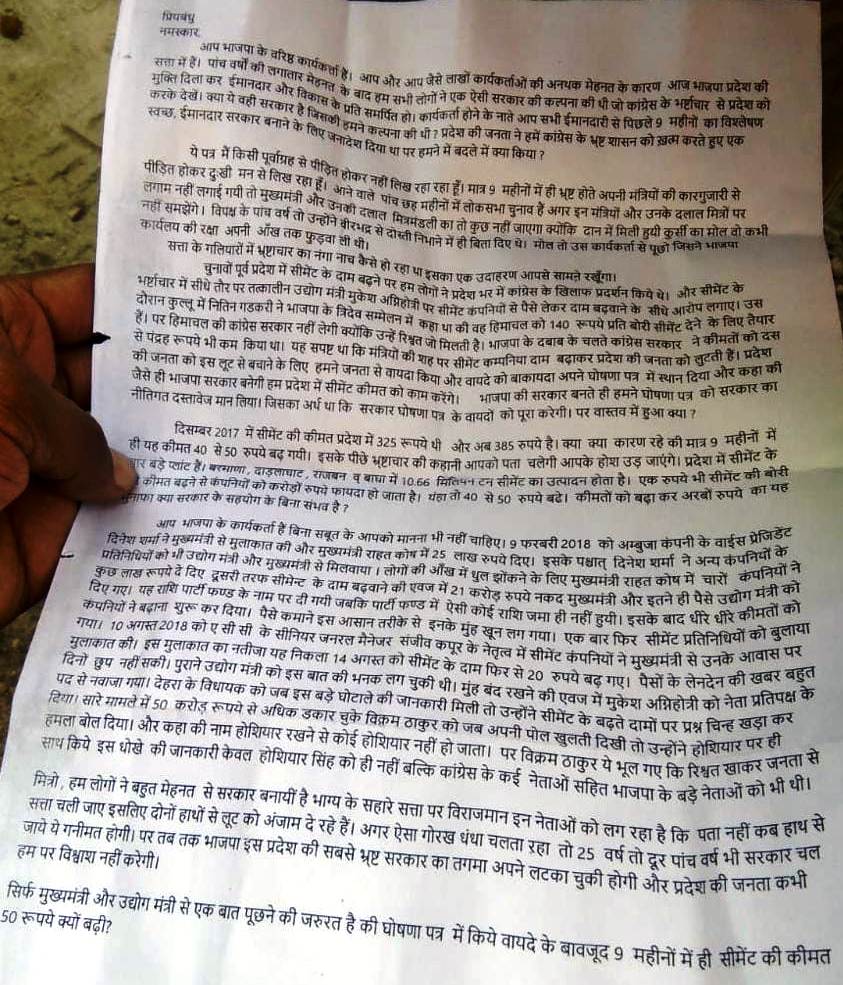 प्रियबंधु
नमस्कार,
आप भाजपा के वरिष्ठ कार्यकर्त्ता हैं। आप और आप जैसे लाखों कार्यकर्त्ताओं की अनथक मेहनत के कारण आज भाजपा प्रदेश की
सत्ता में हैं। पांच वर्षों की लगातार मेहनत के बाद हम सभी लोगों ने एक ऐसी सरकार की कल्पना की थी जो कांग्रेस के भर्ष्टाचार से प्रदेश को
मुक्ति दिला कर ईमानदार और विकास के प्रति समर्पित हो। कार्यकर्ता होने के नाते आप सभी ईमानदारी से पिछले 9 महीनों का विश्लेषण
करके देखें। क्या ये वही सरकार है जिसकी हमने कल्पना की थी? प्रदेश की जनता ने हमें कांग्रेस के भ्रष्ट शासन को ख़त्म करते हुए एक
स्वच्छ, ईमानदार सरकार बनाने के लिए जनादेश दिया था पर हमने में बदले में क्या किया ?
ये पत्र मैं किसी पूर्वाग्रह से पीड़ित होकर नहीं लिख रहा रहा हूँ। मात्र 9 महीनों में ही भ्रष्ट होते अपनी मंत्रियों की कारगुजारी से
पीड़ित होकर दुःखी मन से लिख रहा हूँ। आने वाले पांच छह महीनों में लोकसभा चुनाव हैं अगर इन मंत्रियों और उनके दलाल मित्रों पर
लगाम नहीं लगाई गयी तो मुख्यमंत्री और उनकी दलाल मित्रमंडली का तो कुछ नहीं जाएगा क्योंकि दान में मिली हुयी कुर्सी का मोल वो कभी
नहीं समझेंगे। विपक्ष के पांच वर्ष तो उन्होंने बीरभद्र से दोस्ती निभाने में ही बिता दिए थे। मोल तो उस कार्यकर्ता से पूछो जिसने भाजपा
कार्यलय की रक्षा अपनी आँख तक फुड़वा ली थी।
सत्ता के गलियारों में भ्रष्टाचार का नंगा नाच कैसे हो रहा था इसका एक उदाहरण आपसे सामने रखूँगा।
चुनावों पूर्व प्रदेश में सीमेंट के दाम बढ़ने पर हम लोगों ने प्रदेश भर में कांग्रेस के खिलाफ प्रदर्शन किये थे। और सीमेंट के
भर्ष्टाचार में सीधे तौर पर तत्कालीन उद्योग मंत्री मुकेश अग्निहोत्री पर सीमेंट कंपनियों से पैसे लेकर दाम बढ़वाने के सीधे आरोप लगाए। उस
दौरान कुल्लू में नितिन गडकरी ने भाजपा के त्रिदेव सम्मेलन में कहा था की वह हिमाचल को 140 रूपये प्रति बोरी सीमेंट देने के लिए तैयार
हैं। पर हिमाचल की कांग्रेस सरकार नहीं लेगी क्योंकि उन्हें रिश्वत जो मिलती है। भाजपा के दबाब के चलते कांग्रेस सरकार ने कीमतों को दस
से पंद्रह रूपये भी कम किया था। यह सपष्ट था कि मंत्रियों की शह पर सीमेंट कम्पनिया दाम बढ़ाकर प्रदेश की जनता को लुटती हैं। प्रदेश
की जनता को इस लूट से बचाने के लिए हमने जनता से वायदा किया और वायदे को बाकायदा अपने घोषणा पत्र में स्थान दिया और कहा की
जैसे ही भाजपा सरकार बनेगी हम प्रदेश में सीमेंट कीमत को काम करेंगे। भाजपा की सरकार बनते ही हमने घोषणा पत्र को सरकार का
नीतिगत दस्तावेज मान लिया। जिसका अर्थ था कि सरकार घोषणा पत्र के वायदों को पूरा करेगी। पर वास्तव में हुआ क्या ?
दिसम्बर 2017 में सीमेंट की कीमत प्रदेश में 325 रूपये थी और अब 385 रुपये है। क्या क्या कारण रहे की मात्र 9 महीनों में
ही यह कीमत 40 से 50 रुपये बढ़ गयी। इसके पीछे भ्रष्टाचार की कहानी आपको पता चलेगी आपके होश उड़ जाएंगे। प्रदेश में सीमेंट के
बड़े प्लांट हैं। बरमाणा, दाड़लाघाट, राजबन व् बाघा में 10.66 मिलियन टन सीमेंट का उत्पादन होता है। एक रुपये भी सीमेंट की बोरी
कीमत बढ़ने से कंपनियों को करोड़ों रुपये फायदा हो जाता है। यंहा तो 40 से 50 रुपये बढे। कीमतों को बढ़ा कर अरबों रुपये का यह
क्या सरकार के सहयोग के बिना संभव है ?
आप भाजपा के कार्यकर्ता हैं बिना सबूत के आपको मानना भी नहीं चाहिए। 9 फरबरी 2018 को अम्बुजा कंपनी के वाईस प्रेजिडेंट
दिनेश शर्मा ने मुख्यमंत्री से मुलाकात की और मुख्यमंत्री राहत कोष में 25 लाख रुपये दिए। इसके पश्चात् दिनेश शर्मा ने अन्य कंपनियों के
प्रतिनिधियों को भी उद्योग मंत्री और मुख्यमंत्री से मिलवाया। लोगों की आँख में धुल झोंकने के लिए मुख्यमंत्री राहत कोष में चारों कंपनियों ने
कुछ लाख रूपये दे दिए दूसरी तरफ सीमेन्ट के दाम बढ़वाने की एवज में 21 करोड़ रुपये नकद मुख्यमंत्री और इतने ही पैसे उद्योग मंत्री को
दिए गए। यह राशि पार्टी फण्ड के नाम पर दी गयी जबकि पार्टी फण्ड में ऐसी कोई राशि जमा ही नहीं हुयी। इसके बाद धीरे धीरे कीमतों को
कंपनियों ने बढ़ाना शुरू कर दिया। पैसे कमाने इस आसान तरीके से इनके मुंह खून लग गया। एक बार फिर सीमेंट प्रतिनिधियों को बुलाया
गया। 10 अगस्त 2018 को ए सी सी के सीनियर जनरल मैनेजर संजीव कपूर के नेतृत्व में सीमेंट कंपनियों ने मुख्यमंत्री से उनके आवास पर
मुलाकात की। इस मुलाकात का नतीजा यह निकला 14 अगस्त को सीमेंट के दाम फिर से 20 रुपये बढ़ गए। पैसों के लेनदेन की खबर बहुत
दिनों छुप नहीं सकी। पुराने उद्योग मंत्री को इस बात की भनक लग चुकी थी। मुंह बंद रखने की एवज में मुकेश अग्निहोत्री को नेता प्रतिपक्ष के
पद से नवाजा गया। देहरा के विधायक को जब इस बड़े घोटाले की जानकारी मिली तो उन्होंने सीमेंट के बढ़ते दामों पर प्रश्न चिन्ह खड़ा कर
दिया। सारे मामले में 50 करोड़ रूपये से अधिक डकार चुके विक्रम ठाकुर को जब अपनी पोल खुलती दिखी तो उन्होंने होशियार पर ही
हमला बोल दिया। और कहा की नाम होशियार रखने से कोई होशियार नहीं हो जाता। पर विक्रम ठाकुर ये भूल गए कि रिश्वत खाकर जनता से
साथ किये इस धोखे की जानकारी केवल होशियार सिंह को ही नहीं बल्कि कांग्रेस के कई नेताओं सहित भाजपा के बड़े नेताओं को भी थी।
मित्रो, हम लोगों ने बहुत मेहनत से सरकार बनायीं है भाग्य के सहारे सत्ता पर विराजमान इन नेताओं को लग रहा है कि पता नहीं कब हाथ से
सत्ता चली जाए इसलिए दोनों हाथों से लूट को अंजाम दे रहे हैं। अगर ऐसा गोरख धंधा चलता रहा तो 25 वर्ष तो दूर पांच वर्ष भी सरकार चल
जाये ये गनीमत होगी। पर तब तक भाजपा इस प्रदेश की सबसे भ्रष्ट सरकार का तगमा अपने लटका चुकी होगी और प्रदेश की जनता कभी
हम पर विश्वाश नहीं करेगी।
सिर्फ मुख्यमंत्री और उद्योग मंत्री से एक बात पूछने की जरुरत है की घोषणा पत्र में किये वायदे के बावजूद 9 महीनों में ही सीमेंट की कीमत
50 रूपये क्यों बढ़ी?